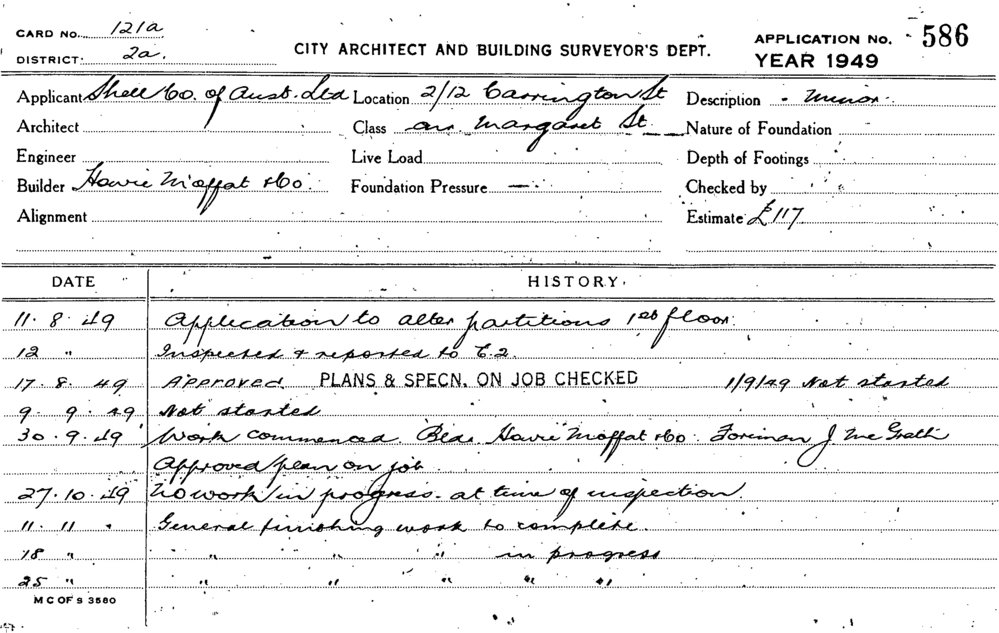 CARD No. 121a
DISTRICT: 2a.
CITY ARCHITECT AND BUILDING SURVEYOR'S DEPT.
APPLICATION No. 586
YEAR 1949
Applicant Shell Co. of Aust. Ltd Location 2/12 Carrington St Description - Minor.
Architect Class cnr. Margaret St Nature of Foundation
Engineer Live Load Depth of Footings
Builder Howie Moffat & Co. Foundation Pressure — Checked by
Alignment Estimate £117
DATE HISTORY.
11. 8. 49 Application to alter partitions 1st floor.
12 " Inspected & reported to E.2.
17. 8. 49 Approved PLANS & SPECN. ON JOB CHECKED 1/9/49 Not started
9. 9. 49 Not started
30. 9. 49 Work commenced. Bldr. Howie Moffat & Co. Foreman J McGrath
Approved plan on job
27. 10. 49 No work in progress at time of inspection.
11. 11 " General finishing work to complete.
18 " " " " in progress
25 " " " " " "
M C OF S 3580